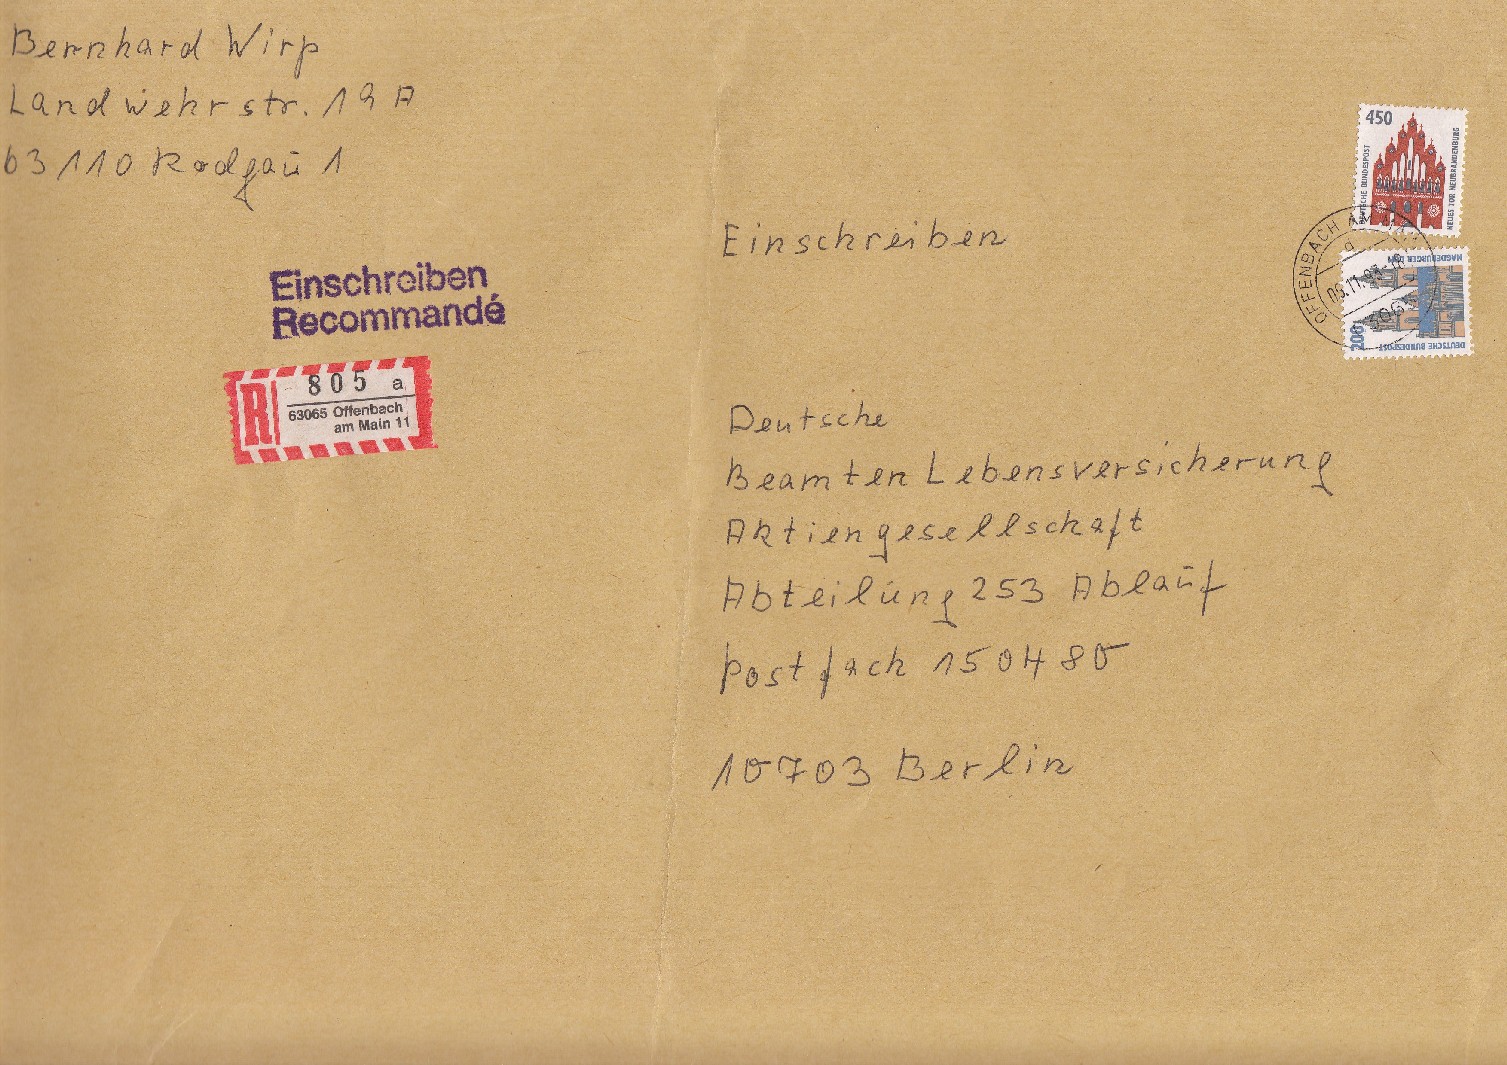 Bernhard Wirp
Landwehrstr. 19 A
63110 Rodgau 1
Einschreiben
Einschreiben
Recommandé
R
805 a
63065 Offenbach
am Main 11
450
DEUTSCHE BUNDESPOST
NEUES TOR NEUBRANDENBURG
OFFENBACH AM MAIN
MAGDEBURGER DOM
200
DEUTSCHE BUNDESPOST
Deutsche
Beamten Lebensversicherung
Aktiengesellschaft
Abteilung 253 Ablauf
Postfach 150480
10703 Berlin